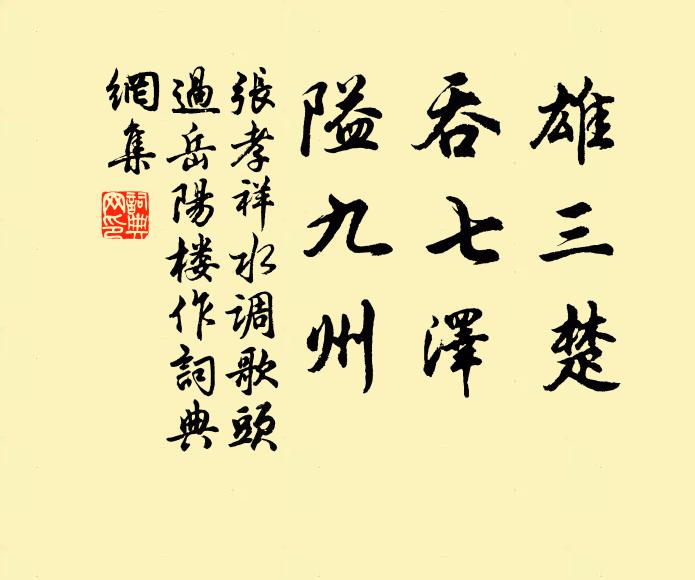 雄三楚
吞七澤
隘九州
張孝祥水调歌頭
過岳陽楼作詞典
網集
詞典網印